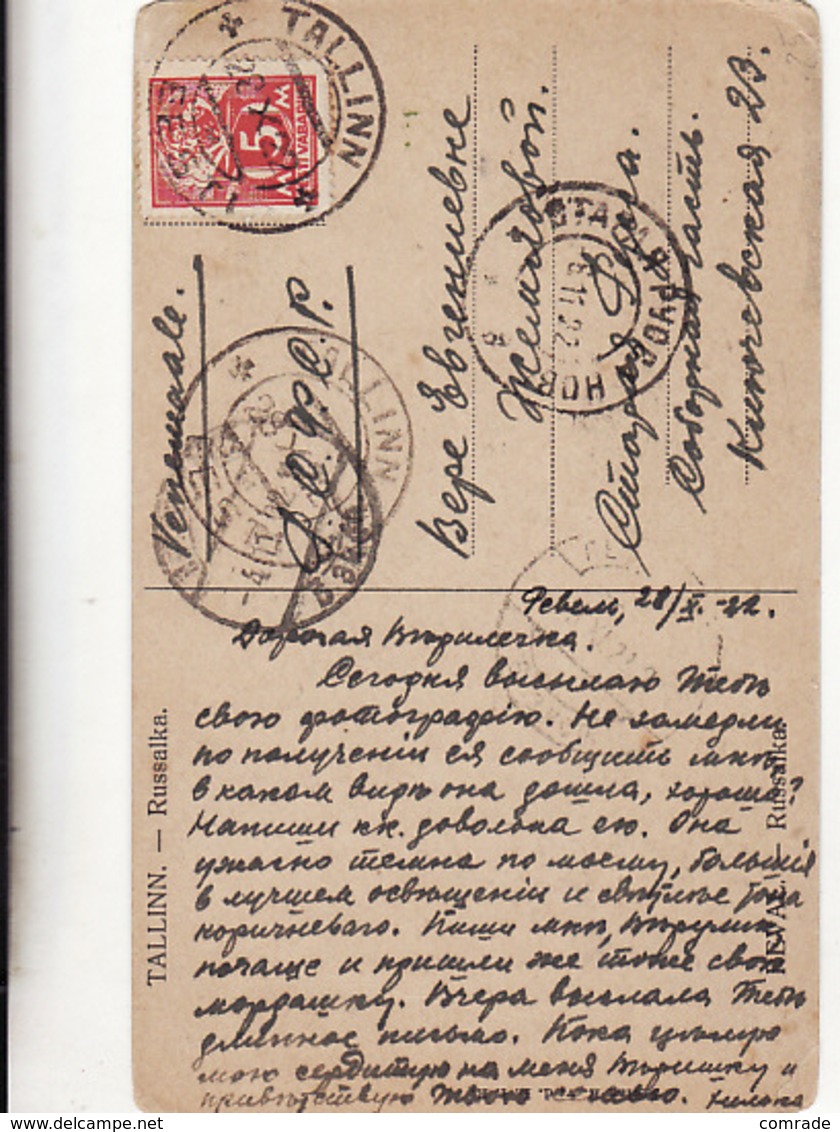 TALLINN
5 M
EESTI VABARIIK
TALLINN
Venemaale.
Р.С.Ф.С.Р.
Вере Евгениевне
Жемчговой.
Старая Русса.
Соборная часть.
Ключевская 23.
СТАРАЯ РУССА НОВ
6 11 22
TALLINN
Ревель, 28/X.-22.
Дорогая Вѣрилечка.
Сегодня высылаю Тебѣ
свою фотографію. Не замедли
по полученіи ея сообщить мнѣ
в каком видѣ она дошла, хороша?
Напиши как довольна ею. Она
ужасно темна по моему, большія
в лучшем освѣщеніи и свѣтлѣе тона
коричневаго. Пиши мнѣ, Вѣруля
почаще и пришли же тоже свою
мордашку. Вчера выслала Тебѣ
длинное письмо. Пока цѣлую
мою сердитую на меня Вѣришку и
привѣтствую
TALLINN. — Russalka.
REVAL. — Russalka.
comrade